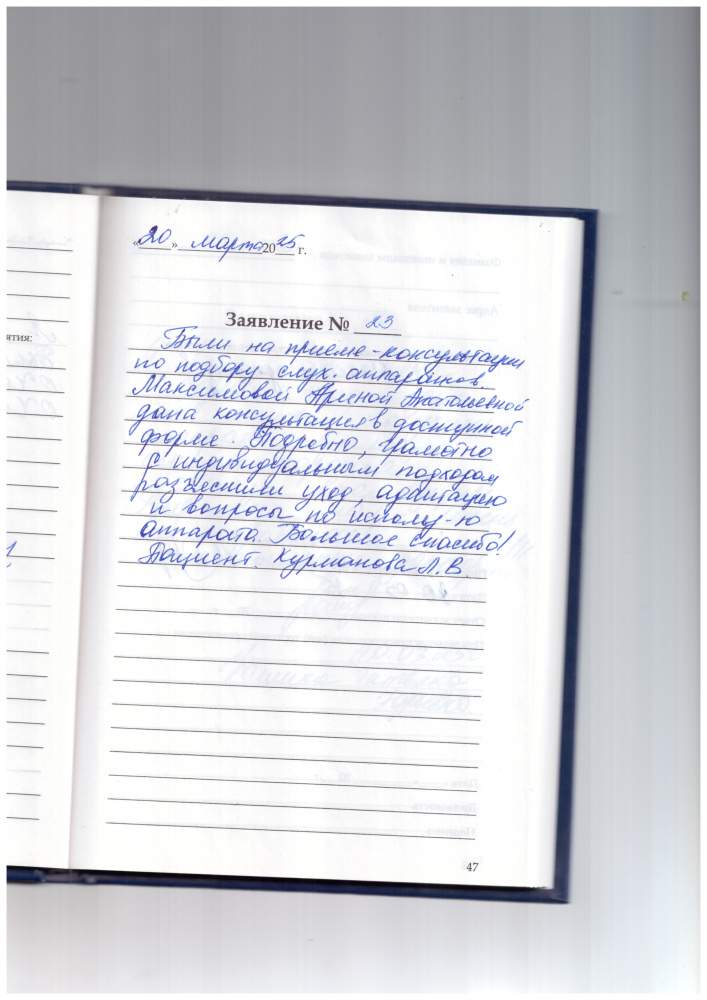 ятия:
«20» марта 2025 г.
Заявление № 23
Были на приеме-консультации
по подбору слух. аппаратов.
Максимовой Ариной Анатольевной
дана консультация в доступной
форме. Подробно, грамотно
с индивидуальным подходом
разъяснили уход, адаптацию
и вопросы по использ-ю
аппарата. Большое спасибо!
Пациент. Курманова Л.В.
47